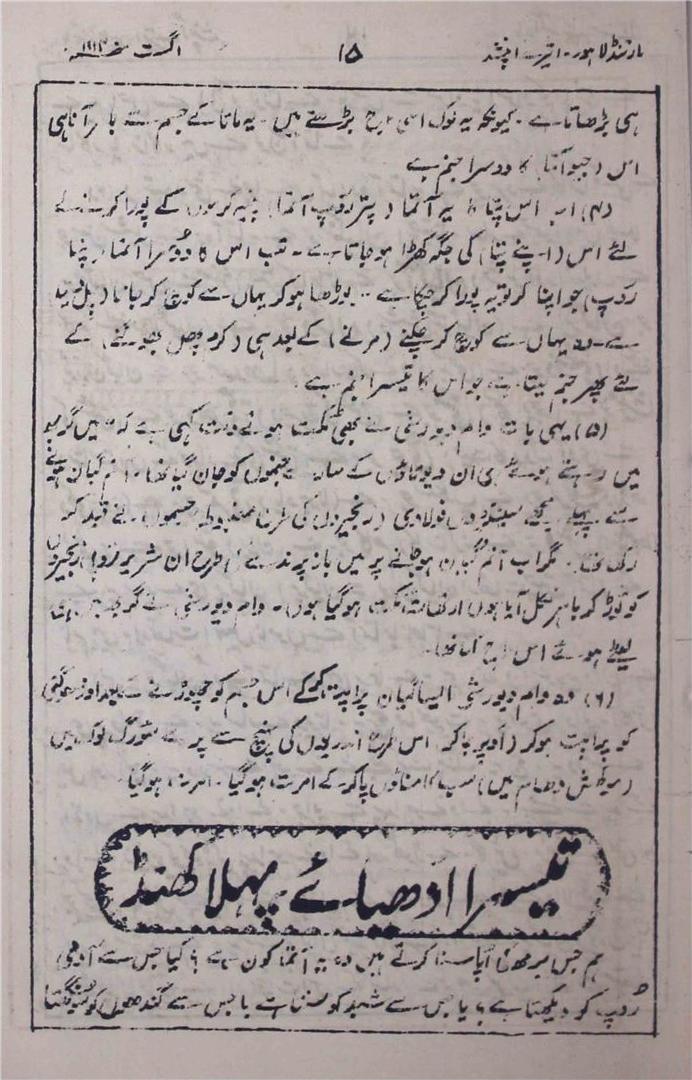 مارتنڈ لاہور - ایترے اپنشد ۱۵ اگست ۱۹۱۳
ہی بڑھاتا ہے - کیونکہ یہ لوک اسی طرح بڑھتے ہیں - یہ ماتا کے جسم سے باہر آنا ہی
اس (جیو آتما) کا دوسرا جنم ہے
(۴) اب اس پتا کا یہ آتما (پتر روپ آتما) پنیہ کرموں کے پورا کرنے کے
لئے اس (اپنے پتا) کی جگہ کھڑا ہو جاتا ہے - تب اس کا دوسرا آتما (پتا
روپ) جو اپنا کرتویہ پورا کر چکا ہے بوڑھا ہو کر یہاں سے کوچ کر جاتا
ہے - وہ یہاں سے کوچ کر چکنے (مرنے) کے بعد ہی (کرم پھل بھوگنے) کے
لئے پھر جنم لیتا ہے، جو اس کا تیسرا جنم ہے
(۵) یہی بات وام دیو رشی نے بھی مکت ہوتے وقت کہی ہے کہ "میں گربھ
میں رہتے ہوئے ہی ان دیوتاؤں کے سارے جنموں کو جان گیا تھا - آتم گیان پانے
سے پہلے مجھے سینکڑوں فولادی (زنجیروں کی طرح مضبوط جسموں) نے قید کر
رکھا تھا - مگر اب آتم گیان ہو جانے پر میں باز پرندے کی طرح ان شریر روپ زنجیروں
کو توڑ کر باہر نکل آیا ہوں ارتھات مکت ہو گیا ہوں - وام دیو رشی نے گربھ میں ہی
لیٹے ہوئے اس طرح کہا تھا -
(۶) وہ وام دیو رشی ایسا گیان پراپت کر کے اس جسم کو چھوڑنے کے بعد اوردھوگتی
کو پراپت ہو کر (اوپر جا کر) اس طرح اندریوں کی پہنچ سے پرے سورگ لوک میں
(موکھش دھام میں) سب کامناؤں پا کر کے امرت ہو گیا - امرت ہو گیا -
تیسرا ادھیائے پہلا کھنڈ
ہم جس برھم کی اپاسنا کرتے ہیں وہ یہ آتما کون ہے ؟ کیا جس سے آدمی
روپ کو دیکھتا ہے ؟ یا جس سے شبد کو سنتا ہے یا جس سے گندھوں کو سونگھتا